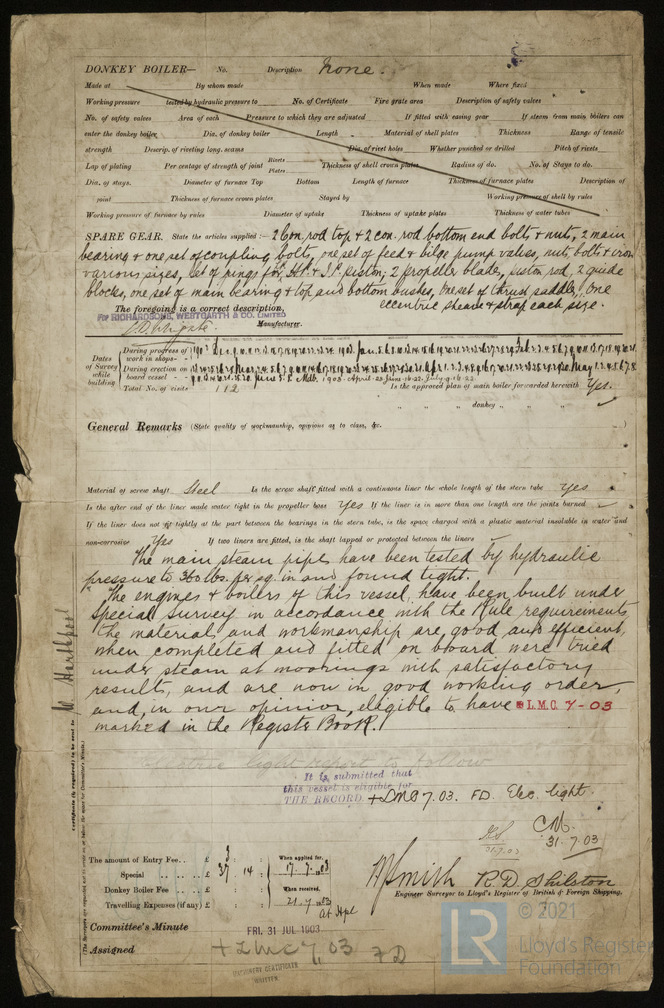 DONKEY BOILER— No. Description None.
Made at By whom made When made Where fixed
Working pressure tested by hydraulic pressure to No. of Certificate Fire grate area Description of safety valves
No. of safety valves Area of each Pressure to which they are adjusted If fitted with easing gear If steam from main boilers can
enter the donkey boiler Dia. of donkey boiler Length Material of shell plates Thickness Range of tensile
strength Descrip. of riveting long. seams Dia. of rivet holes Whether punched or drilled Pitch of rivets
Lap of plating Per centage of strength of joint Rivets Plates Thickness of shell crown plates Radius of do. No. of Stays to do.
Dia. of stays. Diameter of furnace Top Bottom Length of furnace Thickness of furnace plates Description of
joint Thickness of furnace crown plates Stayed by Working pressure of shell by rules
Working pressure of furnace by rules Diameter of uptake Thickness of uptake plates Thickness of water tubes
SPARE GEAR. State the articles supplied:— 2 Con. rod top & 2 con. rod bottom end bolts & nuts, 2 main
bearing & one set of coupling bolts, one set of feed & bilge pump valves, nuts, bolts & iron
various sizes, set of rings for H.P. & I.P. piston, 2 propeller blades, piston rod, 2 guide
blocks, one set of main bearing & top and bottom bushes, one set of thrust saddles, one
eccentric sheave & strap each size.
The foregoing is a correct description,
For RICHARDSONS, WESTGARTH & CO. LIMITED
Manufacturer.
Dates of Survey while building
During progress of work in shops--
During erection on board vessel---
Total No. of visits 112 Is the approved plan of main boiler forwarded herewith Yes.
" " " donkey " " "
General Remarks (State quality of workmanship, opinions as to class, &c.
Material of screw shaft Steel Is the screw shaft fitted with a continuous liner the whole length of the stern tube Yes
Is the after end of the liner made water tight in the propeller boss Yes If the liner is in more than one length are the joints burned
If the liner does not fit tightly at the part between the bearings in the stern tube, is the space charged with a plastic material insoluble in water and
non-corrosive Yes If two liners are fitted, is the shaft lapped or protected between the liners
The main steam pipes have been tested by hydraulic
pressure to 360 lbs. per sq. in and found tight.
The engines & boilers of this vessel, have been built under
Special Survey in accordance with the Rule requirements
the material and workmanship are good and efficient,
when completed and fitted on board were tried
under steam at moorings with satisfactory
results, and are now in good working order,
and, in our opinion, eligible to have L.M.C. 7-03
marked in the Register Book.
Electric light report to follow
It is submitted that
this vessel is eligible for
THE RECORD + LMC 7.03. FD. Elec. light.
C.M.
31.7.03
31.7.03
The amount of Entry Fee.. £ 3 : :
Special .. .. .. £ 37 : 14 :
Donkey Boiler Fee .. .. £ : :
Travelling Expenses (if any) £ : :
When applied for,
17.7.1903
When received,
21.7.1903
At Hpl
W Smith R. D. Shilston
Engineer Surveyor to Lloyd's Register of British & Foreign Shipping.
Committee's Minute FRI. 31 JUL 1903
Assigned + LMC 7.03
FD
MACHINERY CERTIFICATE
WRITTEN.
W. Hartlepool
Certificate (if required) to be sent to
LR
© 2021
Lloyd's Register
Foundation